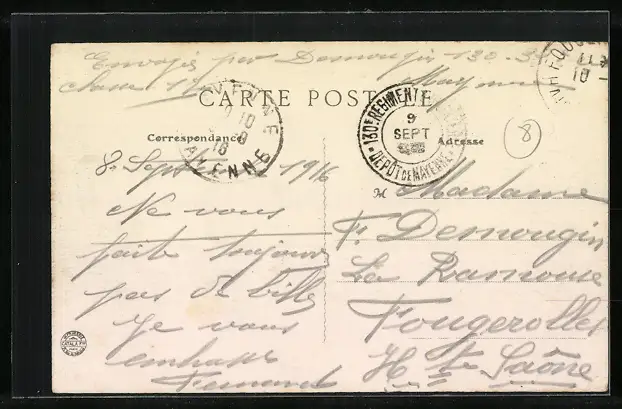 Envoyé par Demougin 130-3
classe 17 Mayenne
CARTE POSTALE
MAYENNE
10
9
16
MAYENNE
130E REGIMENT
9
SEPT
DEPOT DE MAYENNE
FOUGEROLLES
11
10
8
Correspondance
Adresse
8 Septembre 1916
Ne vous
faite toujours
pas de bille
Je vous
embrasse
Fernand
M Madame
F. Demougin
La Ramouse
Fougerolles
Hte Saône